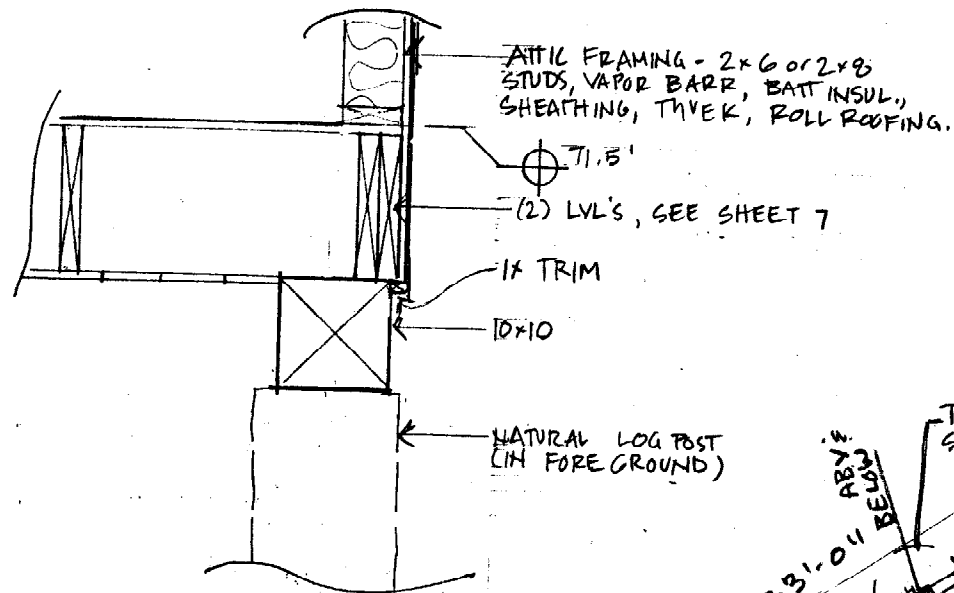 ATTIC FRAMING - 2x6 or 2x8
STUDS, VAPOR BARR, BATT INSUL.,
SHEATHING, TYVEK, ROLL ROOFING.
71.5'
(2) LVL'S, SEE SHEET 7
1x TRIM
10x10
NATURAL LOG POST
(IN FOREGROUND)
ABV'E
BELOW
3'-0"